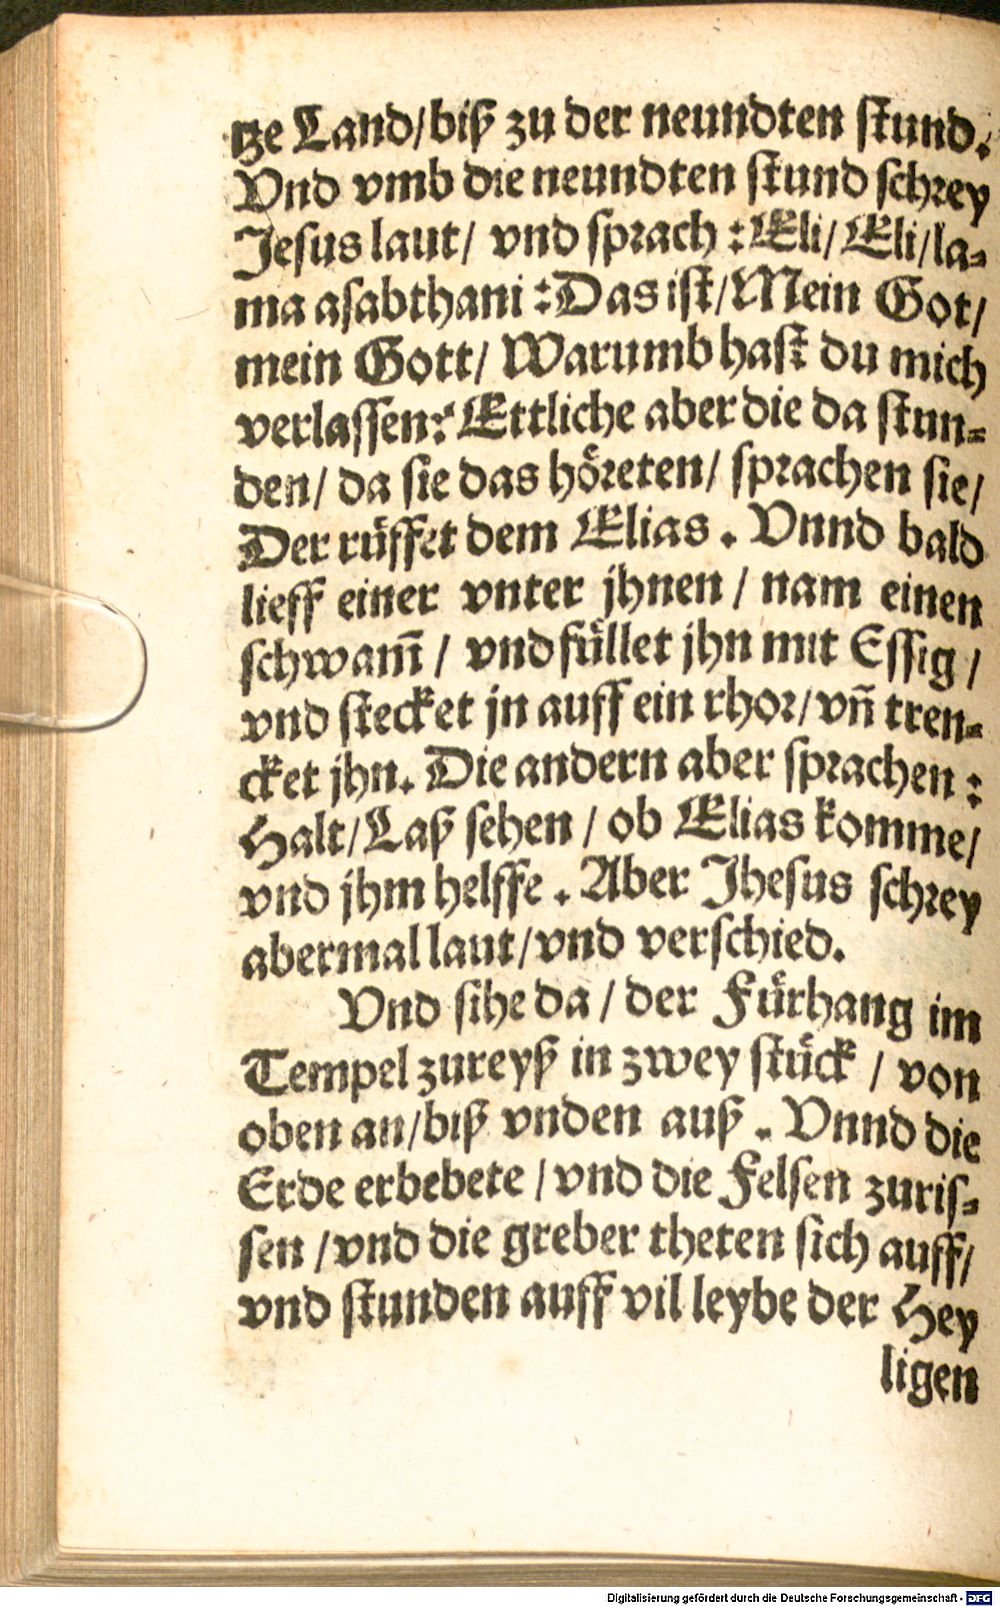 tze Land/biß zu der neundten stund.
Vnd vmb die neundten stund schrey
Jesus laut/ vnd sprach: Eli/ Eli/la-
ma asabthani: Das ist/Mein Got/
mein Gott/ Warumb hast du mich
verlassen? Ettliche aber die da stun-
den/ da sie das höreten/ sprachen sie/
Der rüffet dem Elias. Vnnd bald
lieff einer vnter jhnen / nam einen
schwam̄ / vnd füllet jhn mit Essig /
vnd stecket jn auff ein rhor/vñ tren-
cket jhn. Die andern aber sprachen:
Halt/Laß sehen / ob Elias komme/
vnd jhm helffe. Aber Jhesus schrey
abermal laut/vnd verschied.
Vnd sihe da / der Fürhang im
Tempel zureyß in zwey stück / von
oben an/biß vnden auß. Vnnd die
Erde erbebete /vnd die Felsen zuris-
sen /vnd die greber theten sich auff/
vnd stunden auff vil leybe der Hey
ligen
Digitalisierung gefördert durch die Deutsche Forschungsgemeinschaft - DFG